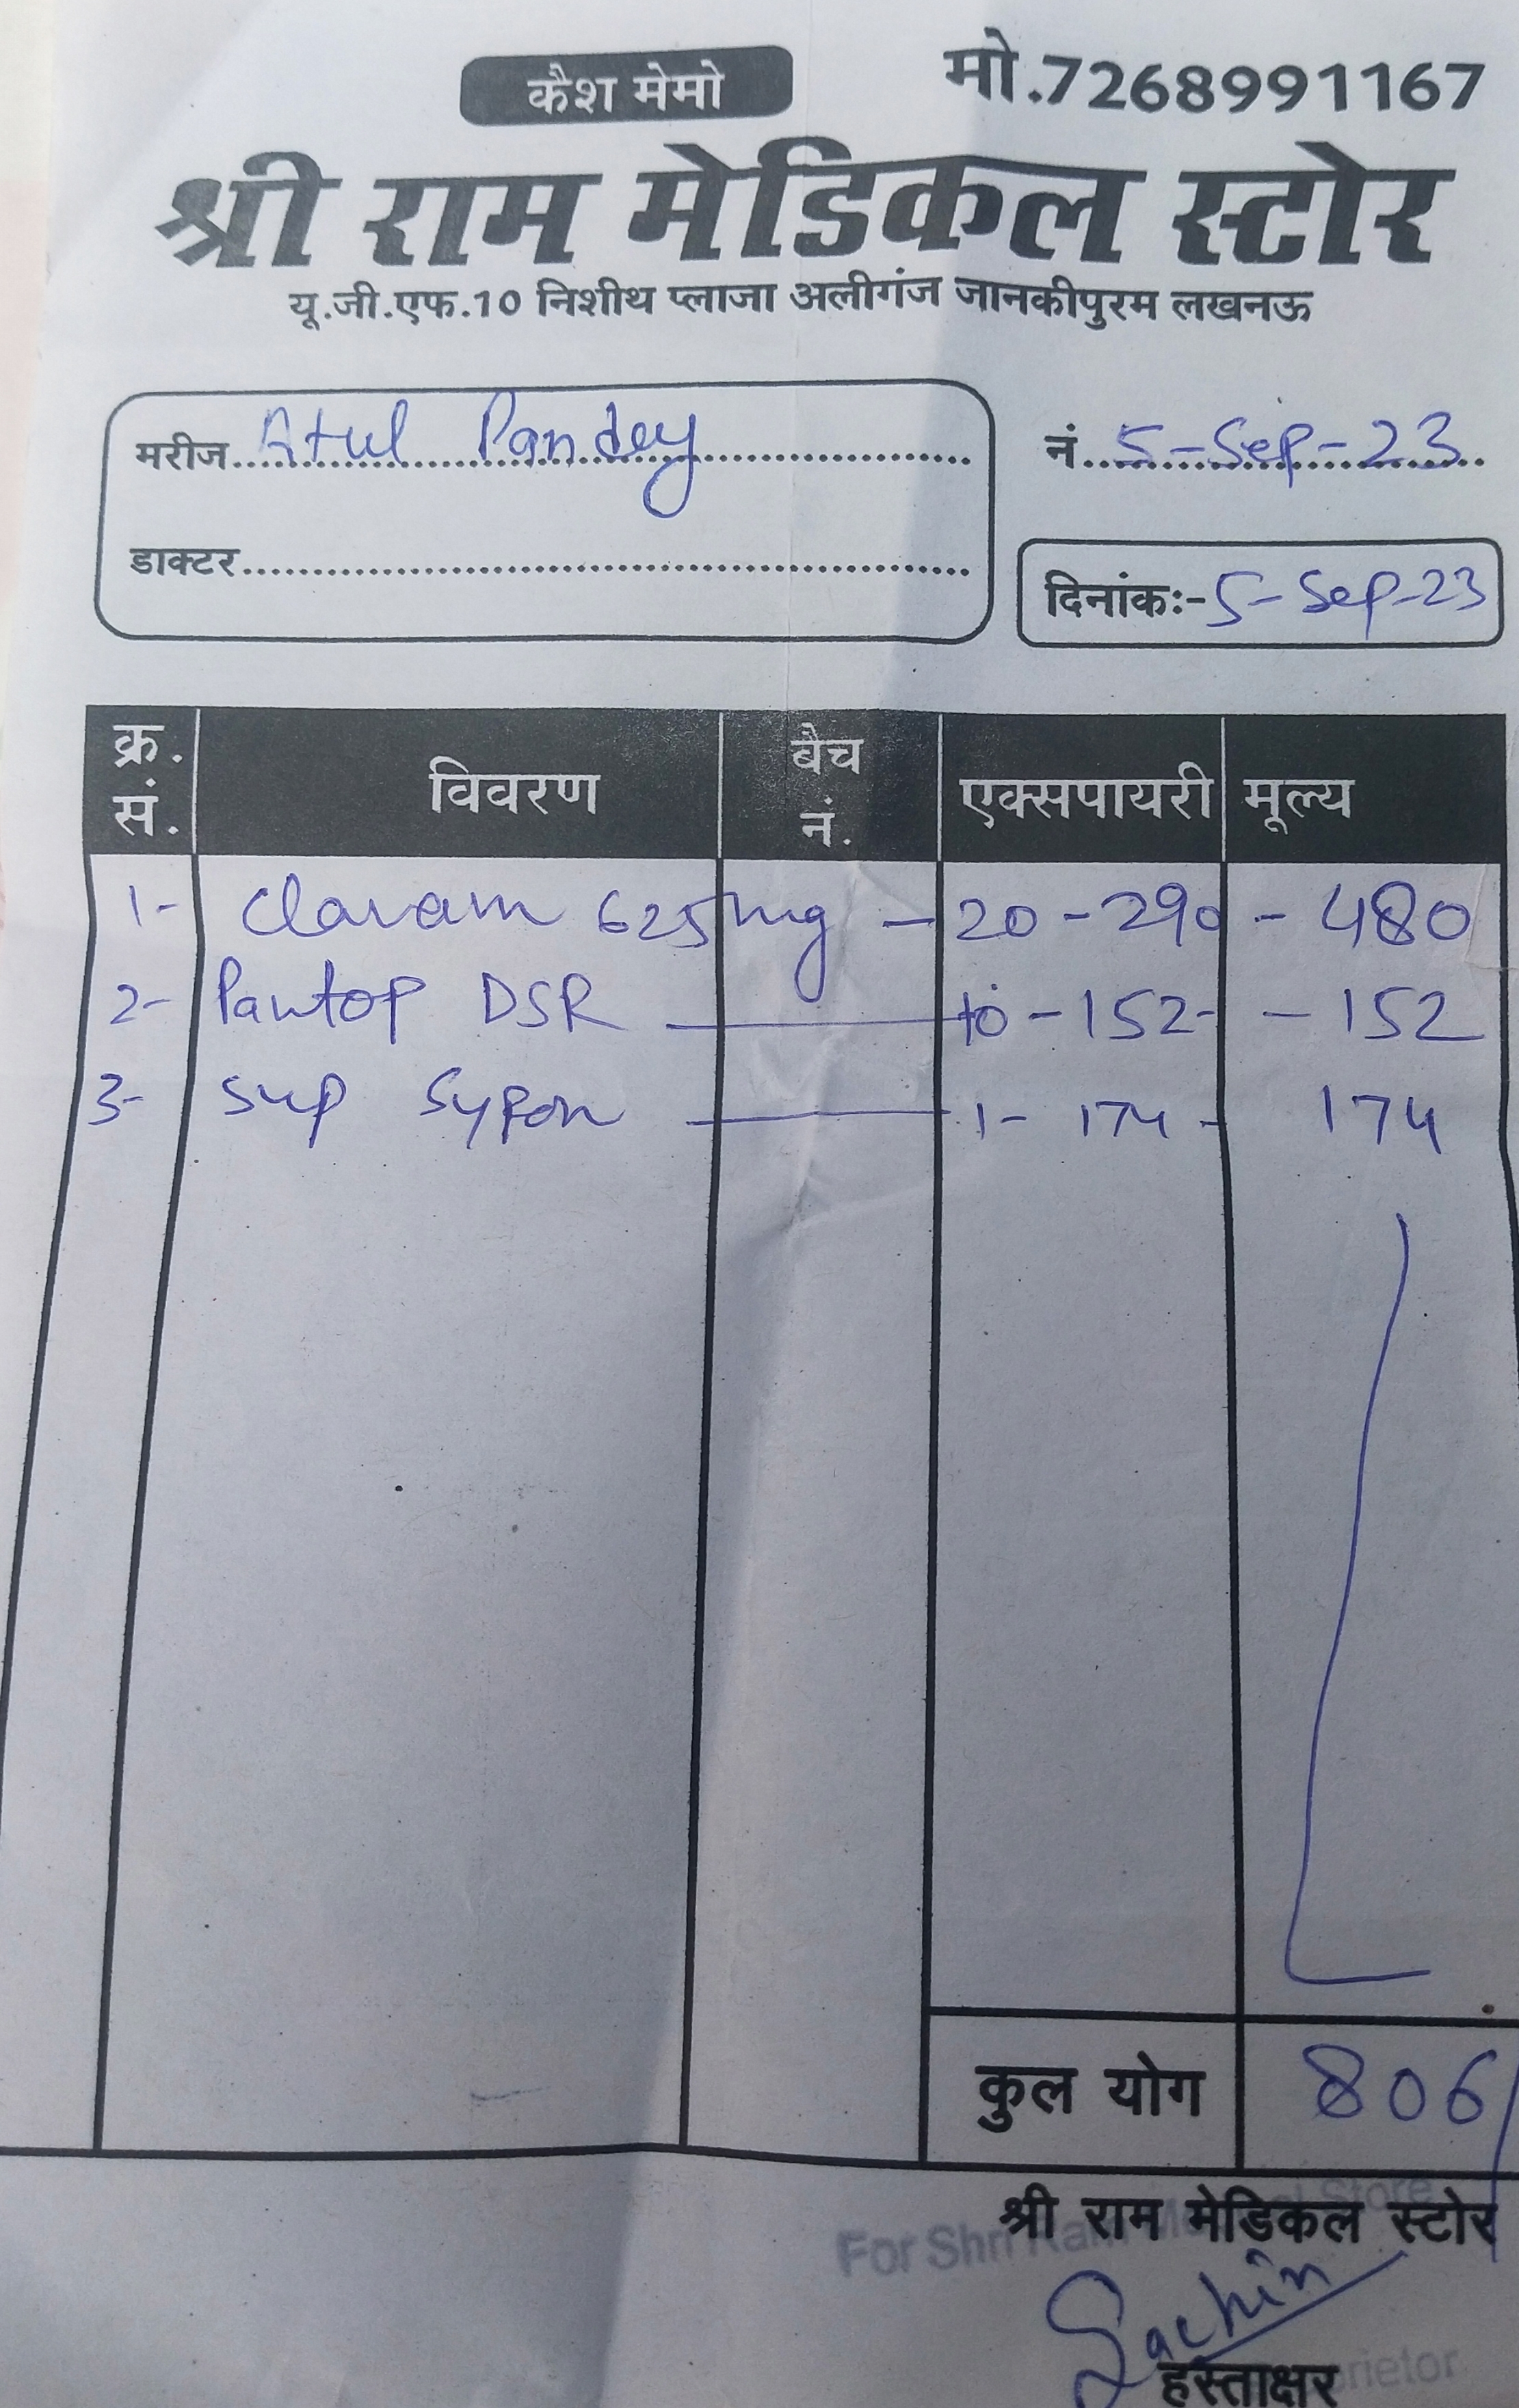 कैश मेमो
मो.7268991167
श्री राम मेडिकल स्टोर
यू.जी.एफ.10 निशीथ प्लाजा अलीगंज जानकीपुरम लखनऊ
मरीज Atul Pandey नं. 5-Sep-23
डाक्टर
दिनांकः- 5-Sep-23
क्र. सं. विवरण बैच नं. एक्सपायरी मूल्य
1- Clavam 625mg - 20 - 290 - 480
2- Pantop DSR 10 - 152 - 152
3- Sup Sypon 1 - 174 - 174
कुल योग 806/
श्री राम मेडिकल स्टोर
For Shri Ram Medical Store
Sachin
हस्ताक्षर